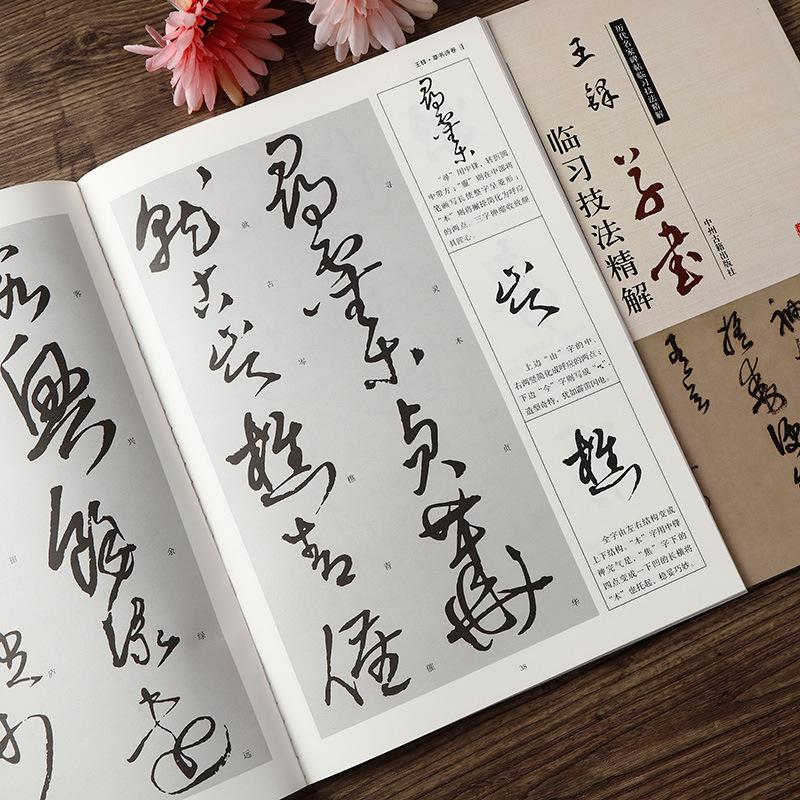 王铎·草书诗卷
寻
灵
木
贞
华
赋
古
岑
樵
青
催
“尋”用中锋，转折圆
中带方；“靈”则在中部将
笔画写长使整字呈菱形；
“木”则将撇捺简化为呼应
的两点。三字伸缩收放颇
具匠心。
上边“山”字的中、
右两竖简化成呼应的两点；
下边“今”字则写成
造型奇特，犹如霹雳闪电。
全字由左右结构变成
上下结构。“木”字用中锋
神完气足，“焦”字下的
四点变成一下凹的长横将
“木”也托起，稳妥巧妙。
38
客
兴
余
绿
远
田
庐
历代名家碑帖临习技法精解
王铎
草书
临习技法精解
中州古籍出版社